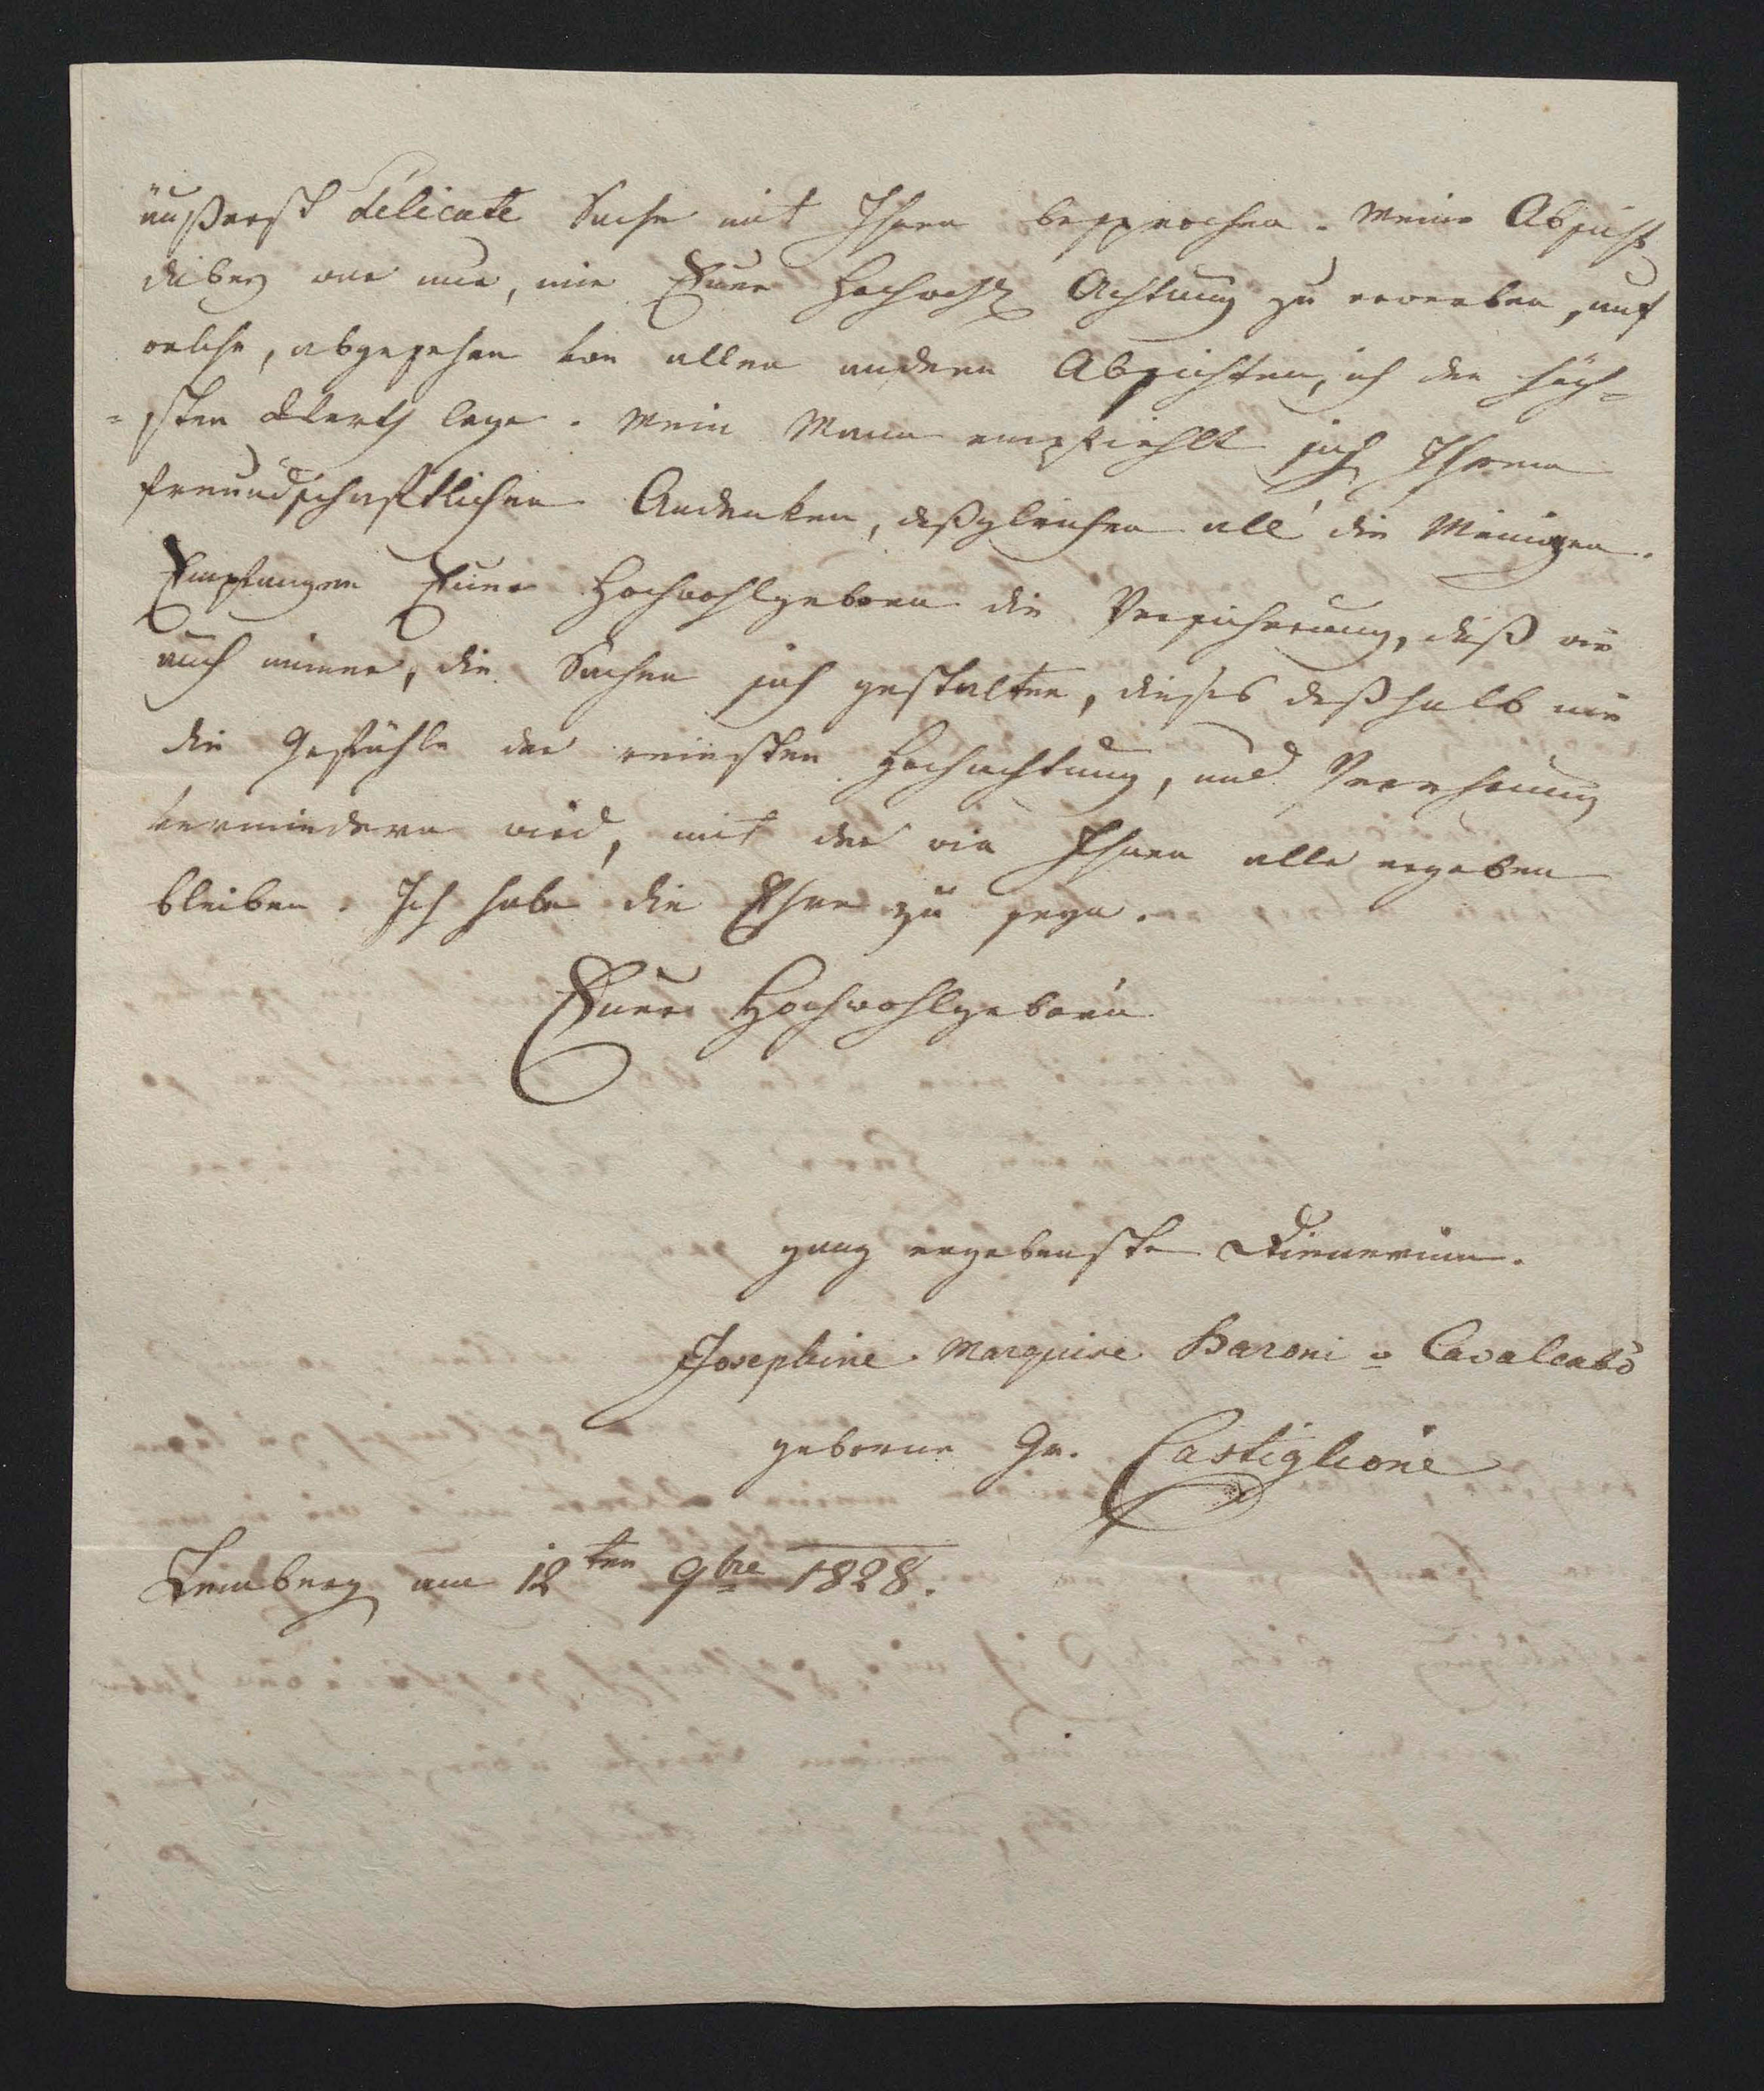 äußerst délicate Sache mit Ihnen besprochen. Meine Absicht
dabey war nur, mir Euer Hochwohl Achtung zu erwerben, auf
welche, abgesehen von allen andern Absichten, ich den höch=
=sten Werth lege. Mein Mann empfiehlt sich Ihrem
freundschaftlichen Andenken, deßgleichen all' die Meinigen.
Empfangen Euer Hochwohlgeboren die Versicherung, daß wie
auch immer, die Sachen sich gestalten, dieses deßhalb nie
die Gefühle der reinsten Hochachtung, und Verehrung
vermindern wird, mit der wir Ihnen alle ergeben
bleiben. Ich habe die Ehre zu seyn.
Euer Hochwohlgeborn
ganz ergebenste Dienerinn.
Josephine Marquise Baroni = Cavalcabò
geborne Gr. Castiglione
Lemberg am 12ten 9bre 1828.